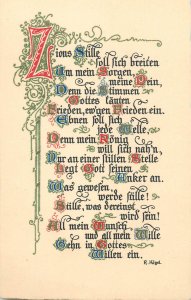 Zions Stille
soll sich breiten
Um mein Sorgen,
meine Pein,
Denn die Stimmen
Gottes läuten
Frieden, ew'gen Frieden ein.
Ebnen soll sich
jede Welle,
Denn mein König
will sich nah'n,
Nur an einer stillen Stelle
Legt Gott seinen
Anker an.
Was gewesen,
werde stille!
Stille, was dereinst
wird sein!
All mein Wunsch
und all mein Wille
Gehn in Gottes
Willen ein.
R. Kögel.